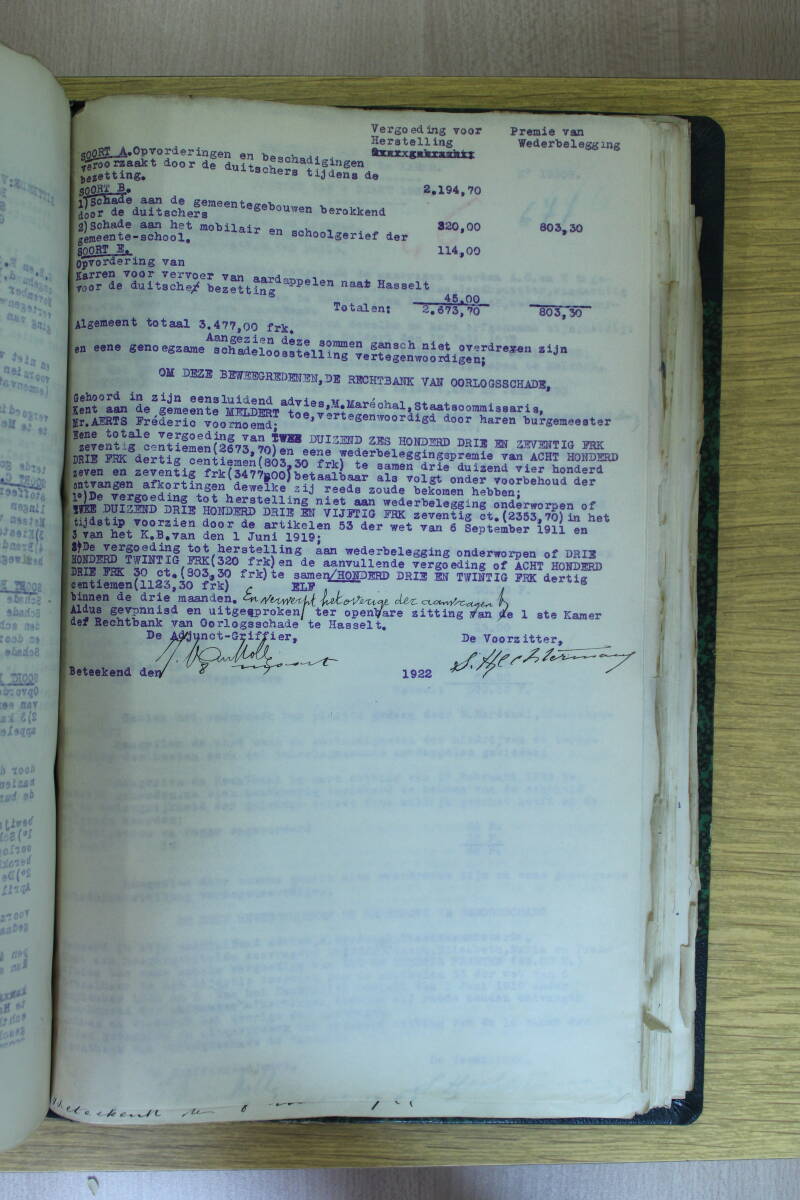 Vergoeding voor Premie van
Herstelling Wederbelegging
SOORT A.Opvorderingen en beschadigingen
veroorzaakt door de duitschers tijdens de
bezetting. 2.194,70
SOORT B.
1)Schade aan de gemeentegebouwen berokkend
door de duitschers 320,00 803,30
2)Schade aan het mobilair en schoolgerief der
gemeente-school. 114,00
SOORT E.
Opvordering van
Karren voor vervoer van aardappelen naat Hasselt
voor de duitsche bezetting 45,00
Totalen: 2.673,70 803,30
Algemeent totaal 3.477,00 frk.
Aangezien deze sommen gansch niet overdrexen zijn
en eene genoegzame schadeloosstelling vertegenwoordigen;
OM DEZE BEWEEGREDENEN,DE RECHTBANK VAN OORLOGSSCHADE,
Gehoord in zijn eensluidend advies,M.Maréchal,Staatscommissaris,
Kent aan de gemeente MELDERT toe,vertegenwoordigd door haren burgemeester
Mr.AERTS Fréderic voornoemd;
Eene totale vergoeding van TWEE DUIZEND ZES HONDERD DRIE EN ZEVENTIG FRK
zeventig centiemen(2673,70)en eene wederbeleggingspremie van ACHT HONDERD
DRIE FRK dertig centiemen(803,30 frk) te samen drie duizend vier honderd
zeven en zeventig frk(3477,00)betaalbaar als volgt onder voorbehoud der
ontvangen afkortingen dewelke zij reeds zoude bekomen hebben;
1°)De vergoeding tot herstelling niet aan wederbelegging onderworpen of
TWEE DUIZEND DRIE HONDERD DRIE EN VIJFTIG FRK zeventig ct.(2353,70)in het
tijdstip voorzien door de artikelen 53 der wet van 6 September 1911 en
3 van het K.B.van den 1 Juni 1919;
2°)De vergoeding tot herstelling aan wederbelegging onderworpen of DRIE
HONDERD TWINTIG FRK(320 frk)en de aanvullende vergoeding of ACHT HONDERD
DRIE FRK 30 ct.(803,30 frk)te samen/HONDERD DRIE EN TWINTIG FRK dertig
centiemen(1123,30 frk) ELF
binnen de drie maanden. En verwerpt het overige der aanvragen
Aldus gevonnisd en uitgesproken ter openbare zitting van de 1 ste Kamer
def Rechtbank van Oorlogsschade te Hasselt.
De Adjunct-Griffier, De Voorzitter,
Beteekend den 8 maart 1922